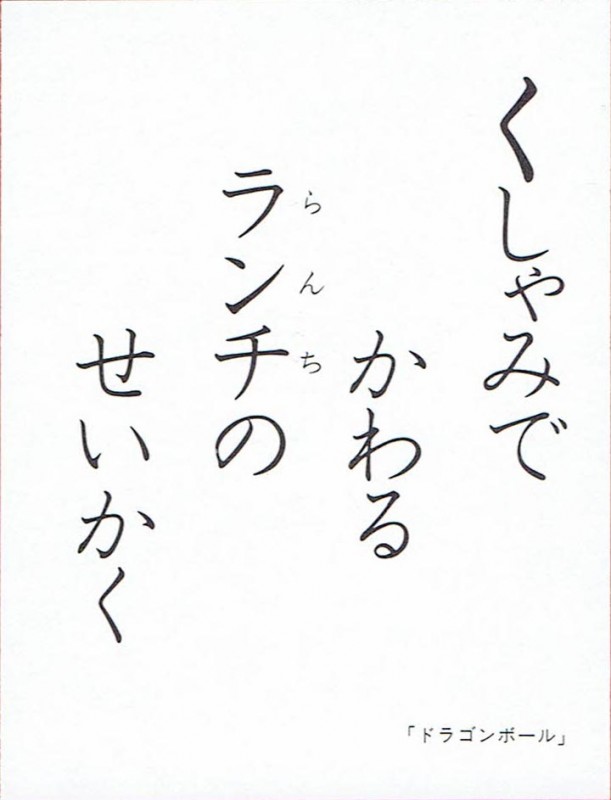 くしゃみで
かわる
ランチの
らんち
せいかく
「ドラゴンボール」